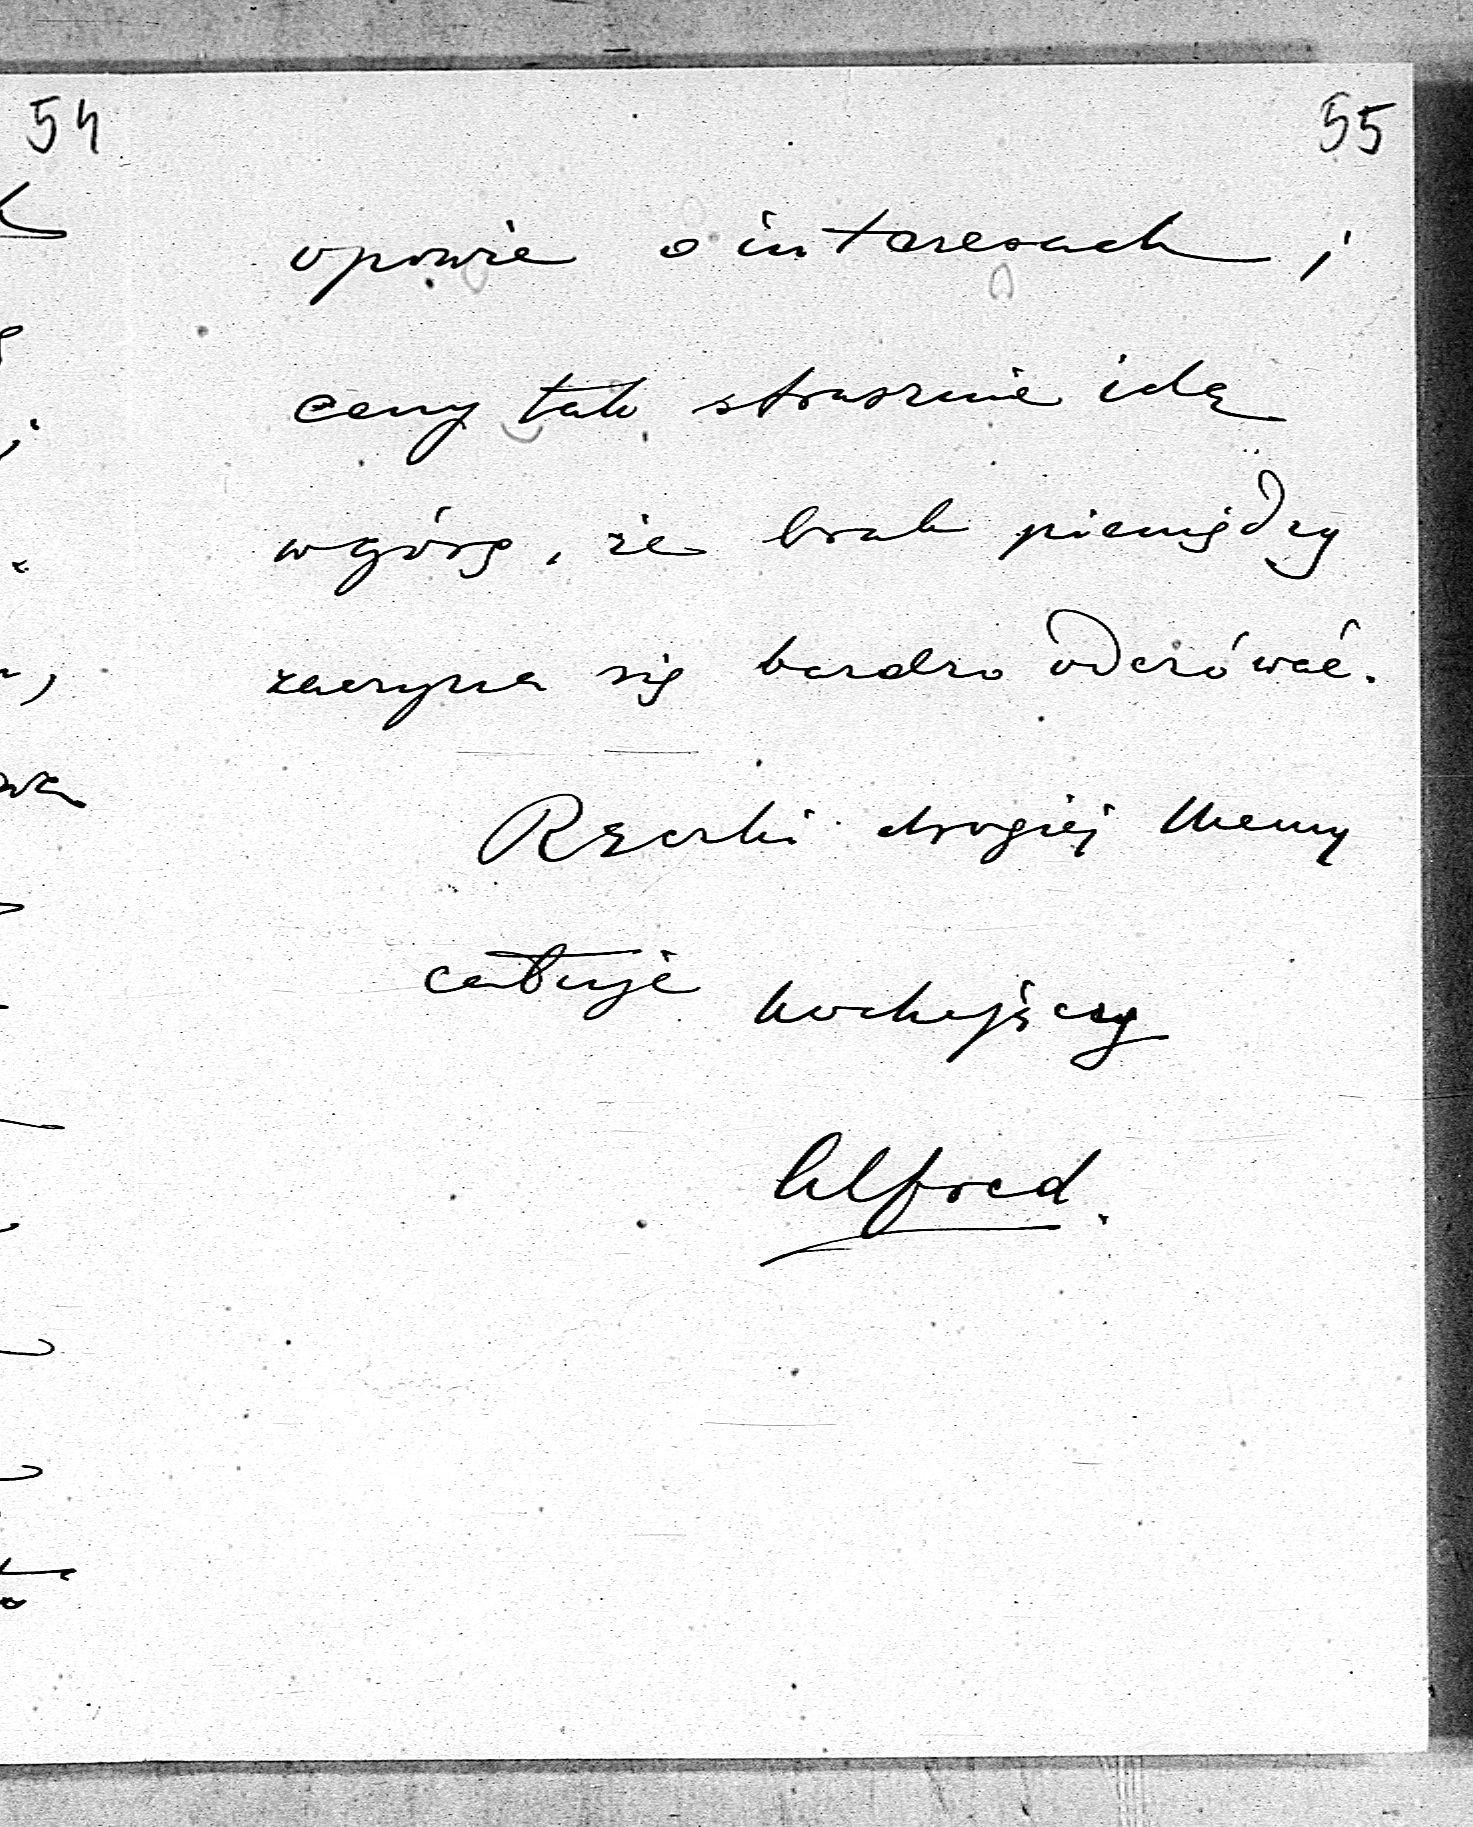 54
55
opowie o interesach ;
ceny tak strasznie idą
wgórę, że brak pieniędzy
zaczyna się bardzo odczówać.
Rączki drogiej Mamy
całuje kochający
Alfred.